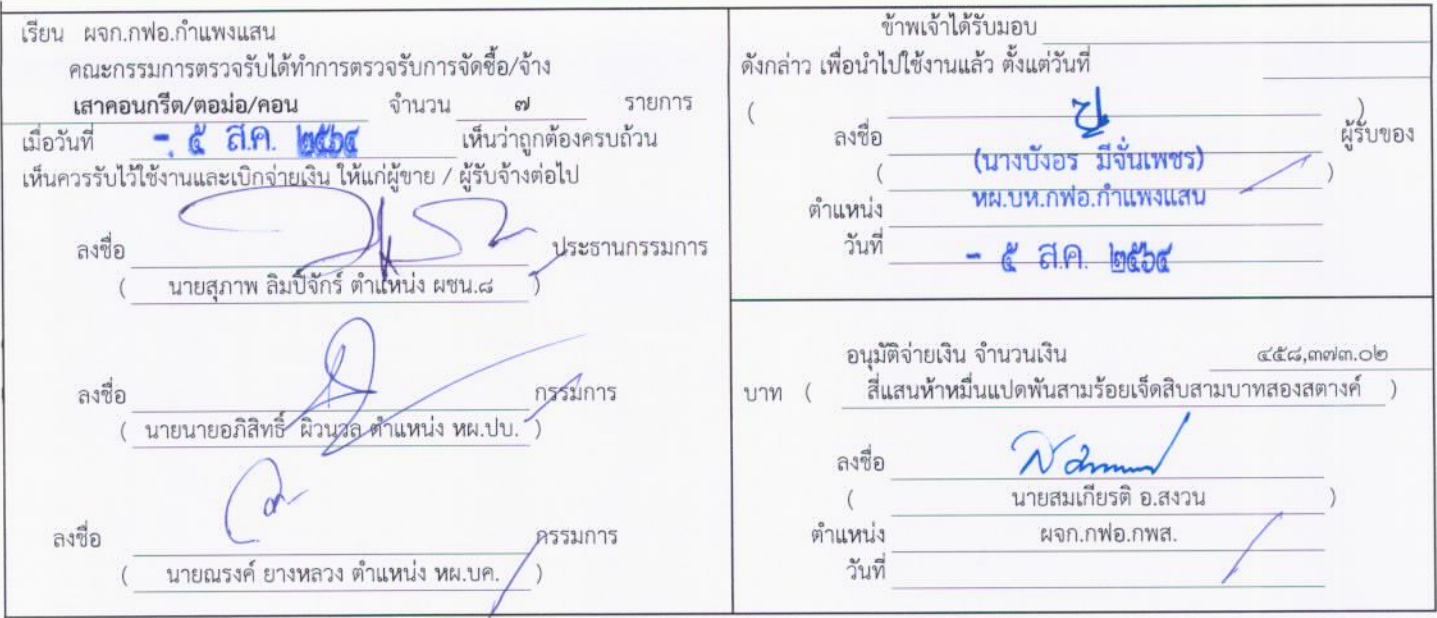 เรียน ผจก.กฟอ.กำแพงแสน
คณะกรรมการตรวจรับได้ทำการตรวจรับการจัดซื้อ/จ้าง
เสาคอนกรีต/ตอม่อ/คอน จำนวน ๗ รายการ
เมื่อวันที่ - ๕ ส.ค. ๒๕๖๔ เห็นว่าถูกต้องครบถ้วน
เห็นควรรับไว้ใช้งานและเบิกจ่ายเงิน ให้แก่ผู้ขาย / ผู้รับจ้างต่อไป
ลงชื่อ ประธานกรรมการ
( นายสุภาพ ลิมปิ์จักร์ ตำแหน่ง ผชน.๘ )
ลงชื่อ กรรมการ
( นายนายอภิสิทธิ์ ผิวนวล ตำแหน่ง หผ.ปบ. )
ลงชื่อ กรรมการ
( นายณรงค์ ยางหลวง ตำแหน่ง หผ.บค. )
ข้าพเจ้าได้รับมอบ
ดังกล่าว เพื่อนำไปใช้งานแล้ว ตั้งแต่วันที่
( )
ลงชื่อ ผู้รับของ
( (นางบังอร มีจั่นเพชร) )
ตำแหน่ง หผ.บห.กฟอ.กำแพงแสน
วันที่ - ๕ ส.ค. ๒๕๖๔
อนุมัติจ่ายเงิน จำนวนเงิน ๔๕๘,๓๗๓.๐๒
บาท ( สี่แสนห้าหมื่นแปดพันสามร้อยเจ็ดสิบสามบาทสองสตางค์ )
ลงชื่อ
( นายสมเกียรติ อ.สงวน )
ตำแหน่ง ผจก.กฟอ.กพส.
วันที่